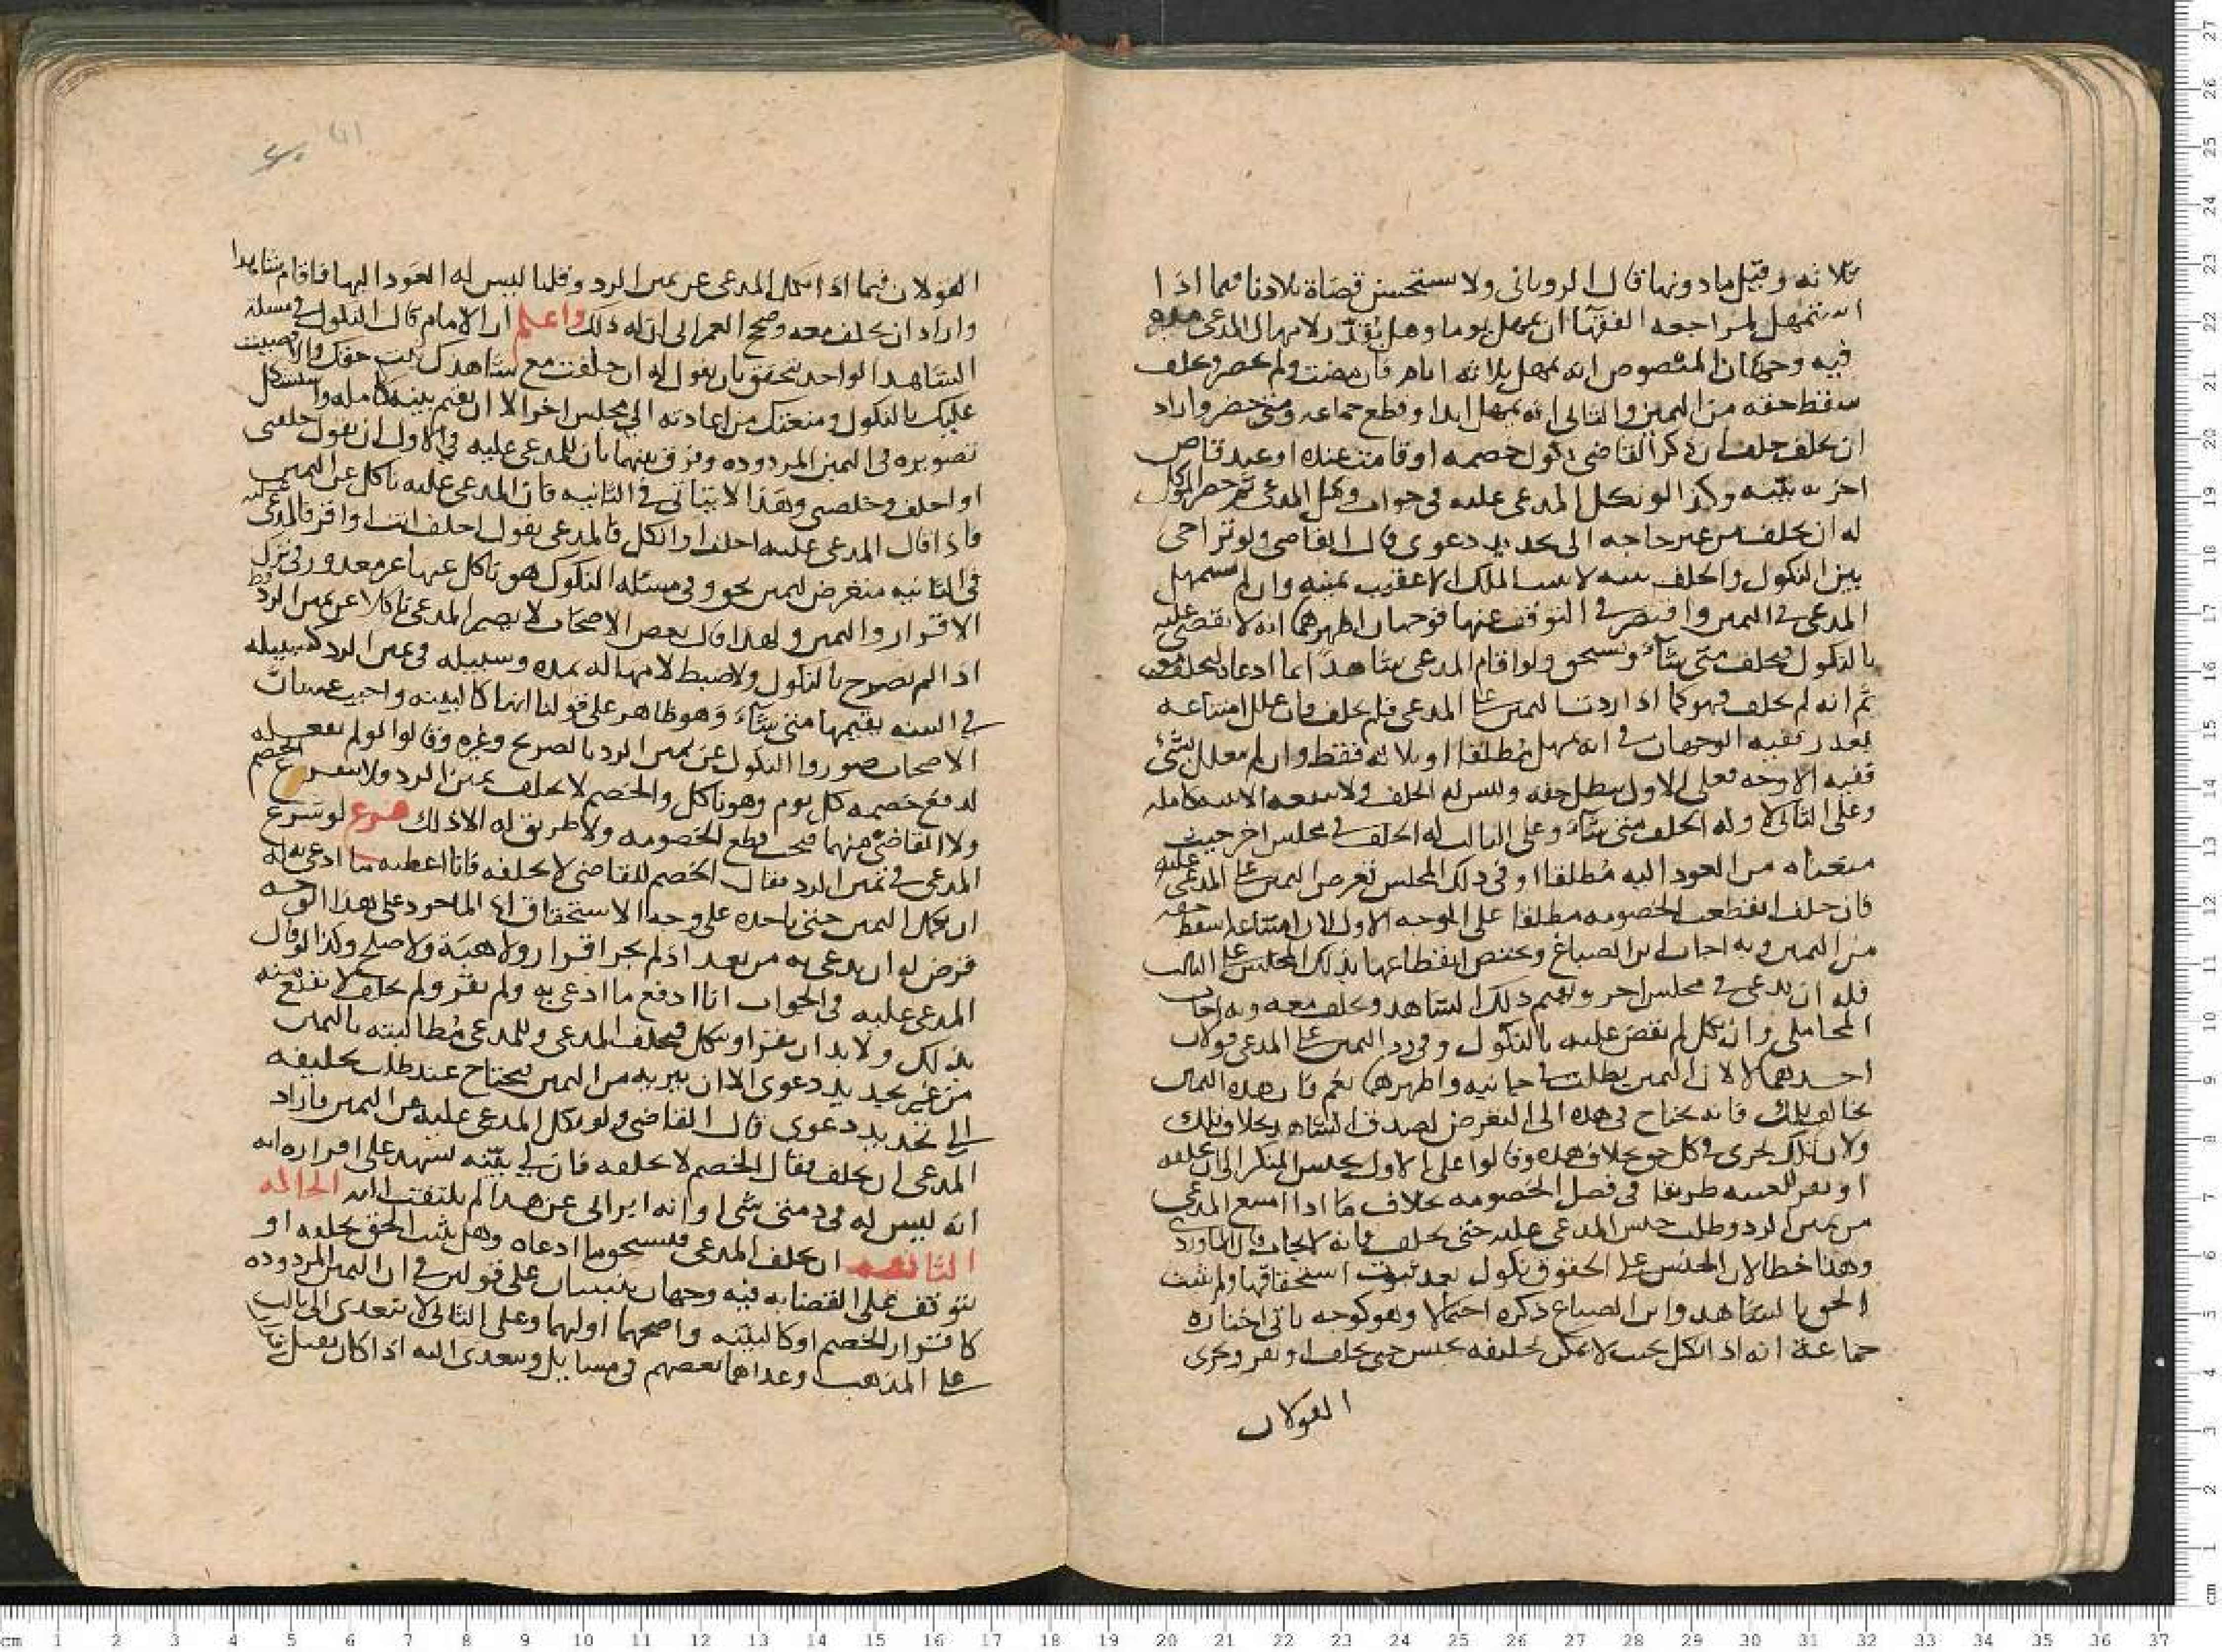 ثلاثه وقيل ما دونها قال الروياني ولا يستحسن قضاة بلادنا فيما اذا
استمهل لمراجعه الفقها ان يمهل يوما وهل يقدر لامهال المدعي مده
فيه وجهان المنصوص انه يمهل ثلاثه ايام فان مضت ولم يحضر ويحلف
سقط حقه من اليمين والثاني انه يمهل ابدا وقطع جماعه ومتى حضر واراد
ان يحلف حلف ان ذكر القاضي نكول خصمه او قامت عنده او عند قاض
اخر به بينه وكذا لو نكل المدعى عليه في جواب وكيل المدعي ثم حضر الموكل
له ان يحلف من غير حاجه الى تجديد دعوى قال القاضي ولو تراخى
بين النكول والحلف
المدعي في اليمين واقتصر في التوقف عنها فوجهان اظهرهما انه لا يقضى عليه
بالنكول فيحلف متى شاء ويستحق ولو اقام المدعي شاهدا بما ادعاه ليحلف معه
ثم انه لم يحلف فهو كما اذا ردت اليمين على المدعي فلم يحلف فان علل امتناعه
بعذر ففيه الوجهان في انه يمهل مطلقا او ثلاثه فقط وان لم يعلل بشئ
ففيه الاوجه فعلى الاول يبطل حقه وليس له الحلف ولا ينفعه الا بينه كامله
وعلى الثاني لا وله الحلف متى شاء وعلى الثالث له الحلف في مجلس اخر حيث
منعناه من العود اليه مطلقا او في ذلك المجلس تعرض اليمين على المدعى عليه
فان حلف انقطعت الخصومه مطلقا على الوجه الاول لان امتناعه اسقط حقه
من اليمين وبه اجاب ابن الصباغ ويختص انقطاعها بذلك المجلس على الثالث
فله ان يدعي في مجلس اخر ويقيم ذلك الشاهد ويحلف معه وبه اجاب
المحاملي وان نكل لم يقض عليه بالنكول وفي رد اليمين على المدعي قولان
احدهما لا لان اليمين بطلت في جانبه واظهرهما نعم فان هذه اليمين
تخالف تلك فانه يحتاج في هذه الى التعرض لصدق الشاهد بخلاف تلك
ولان تلك تجري في كل حق بخلاف هذه وقالوا على الاول يحبس المنكر الى ان يحلف
او يقر طريقا في فصل الخصومه بخلاف ما اذا امتنع المدعي
من يمين الرد وطلب حبس المدعى عليه حتى يحلف فانه لا يجاب قال الماوردي
وهذا خطا لان الحبس على الحقوق يكون بعد ثبوت استحقاقها ولم يثبت
الحق بالشاهد وابن الصباغ ذكره احتمالا وهو كوجه ياتي اختاره
جماعة انه اذا نكل بحيث لا يمكن تحليفه يحبس حتى يحلف او يقر ويجري
القولان
القولان فيما اذا نكل المدعي عن يمين الرد وقلنا ليس له العود اليها فاقام شاهدا
واراد ان يحلف معه وصحح العمراني ان له ذلك واعلم ان الامام قال النكول في مسله
الشاهد الواحد يتحقق بان يقول له ان حلفت مع شاهدك ثبت حقك والا قضيت
عليك بالنكول ومنعتك من اعادته الى مجلس اخر الا ان تقيم بينه كامله واستشكل
تصويره في اليمين المردوده وفرق بينهما بان للمدعى عليه في الاول ان يقول حلفني
او احلف وخلصني وهذا لا يتاتى في الثانيه فان المدعى عليه ناكل عن اليمين
فاذا قال المدعى عليه احلف او انكل فالمدعي يقول احلف انت او اقر فالمدعى عليه
في الثانيه متعرض ليمين بحق وفي مسئله النكول هو ناكل عنها غير معذور في ترك
الاقرار واليمين ولهذا قال بعض الاصحاب لا يصير المدعي ناكلا عن يمين الرد قط
اذا لم يصرح بالنكول ولا ضبط لامهاله بمده وسبيله في يمين الرد كسبيله
في البينه يقيمها متى شاء وهو ظاهر على قولنا انها كالبينه واجيب عنه بان
الاصحاب صوروا النكول عن يمين الرد بالصريح وغيره وقالوا لو لم نفعله
لدفع خصمه كل يوم وهو ناكل والخصم لا يحلف يمين الرد ولا يتفرغ الخصم
ولا القاضي منهما فيجب قطع الخصومه ولا طريق له الا ذلك فرع لو شرع
المدعي في يمين الرد فقال الخصم للقاضي لا تحلفه فانا اعطيه ما ادعى به له
ان يكمل اليمين حتى ياخذه على وجه الاستحقاق اذ الماخوذ على هذا الوجه
فرض له ان يدعي به من بعد اذ لم يجر اقرار ولا هبة ولا صلح وكذا لو قال
المدعى عليه في الجواب انا ادفع ما ادعى به ولم يقر ولم يحلف لا يقنع منه
بذلك ولا بد ان يقر او ينكل فيحلف المدعي وللمدعي مطالبته باليمين
من غير تجديد دعوى الا ان يبريه من اليمين فيحتاج عند طلب تحليفه
الى تجديد دعوى قال القاضي ولو نكل المدعى عليه عن اليمين فاراد
المدعي ان يحلف فقال الخصم لا تحلفه فان لي بينه تشهد على اقراره انه
انه ليس له في ذمتي شي او انه ابراني عن هذا لم يلتفت اليه الحاله
الثانيه ان يحلف المدعي فيستحق ما ادعاه وهل يثبت الحق بحلفه او
يتوقف على القضا به فيه وجهان ينبنيان على قولين في ان اليمين المردوده
كاقرار الخصم او كالبينه واصحهما اولهما وعلى الثاني لا يتعدى الى ثالث
على المذهب وعداها بعضهم في مسايل ويتعدى اليه اذا كان يقبل